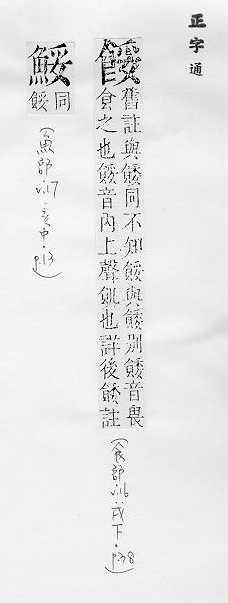 正字通
舊註與餧同不知餒與餧別餧音畏
食之也餒音內上聲飢也詳後餧註
(食部 v.16 戌下 p.38)
鮾
同餒
(魚部 v.17 亥中 p.13)